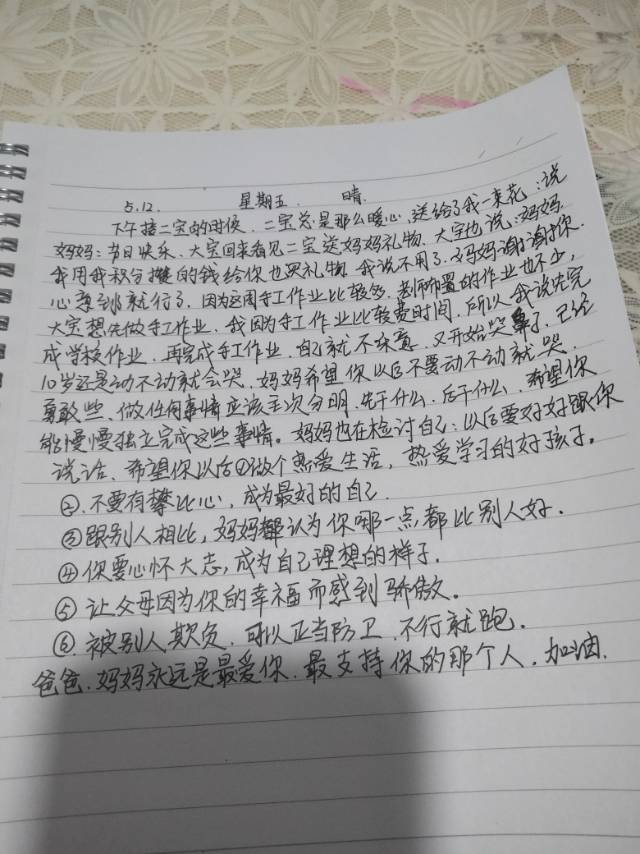 5.12. 星期五. 晴.
下午接二宝的时候, 二宝总是那么暖心, 送给了我一束花, 说
妈妈: 节日快乐. 大宝回来看见二宝送妈妈礼物. 大宝也说: 妈妈.
我用我积分换的钱给你也买礼物. 我说不用了. 妈妈谢谢你.
心意到就行了. 因为这周手工作业比较多. 老师布置的作业也不少,
大宝想先做手工作业. 我因为手工作业比较费时间. 所以我说先完
成学校作业. 再完成手工作业. 自己就不乐意. 又开始哭鼻了. 已经
10岁还是动不动就会哭. 妈妈希望你以后不要动不动就哭.
勇敢些. 做任何事情应该主次分明. 先干什么. 后干什么. 希望你
能慢慢独立完成这些事情。妈妈也在检讨自己: 以后要好好跟你
说话. 希望你以后①做个热爱生活, 热爱学习的好孩子。
②. 不要有攀比心, 成为最好的自己.
③跟别人相比, 妈妈都认为你哪一点都比别人好.
④你要心怀大志, 成为自己理想的样子.
⑤ 让父母因为你的幸福而感到骄傲。
⑥. 被别人欺负. 可以正当防卫. 不行就跑.
爸爸. 妈妈永远是最爱你. 最支持你的那个人. 加油.